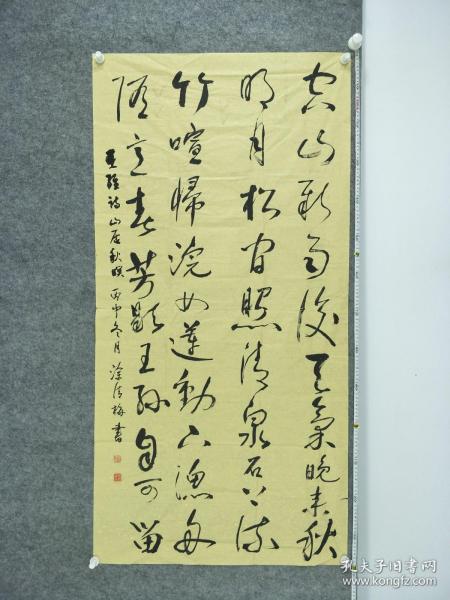 空山新雨後天氣晚来秋
明月松間照清泉石上流
竹喧歸浣女蓮動下漁舟
随意春芳歇王孫自可留
王維詩山居秋暝 丙申冬月 梅書
孔夫子旧书网
www.kongfz.com